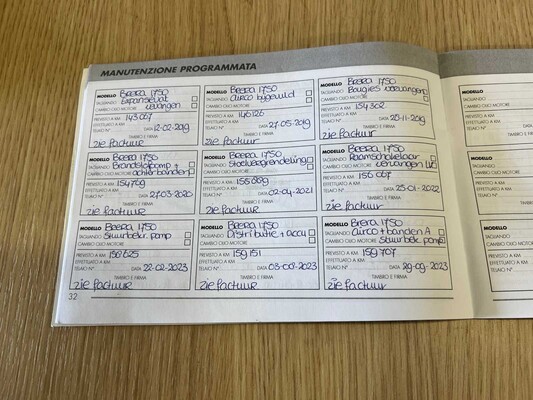 MANUTENZIONE PROGRAMMATA
MODELLO Brera 1750
TAGLIANDO Expansievat
CAMBIO OLIO MOTORE vervangen
PREVISTO A KM 143.067
EFFETTUATO A KM
TELAIO N° DATA 12-02-2019
TIMBRO E FIRMA
zie factuur
MODELLO Brera 1750
TAGLIANDO Airco bijgevuld
CAMBIO OLIO MOTORE
PREVISTO A KM 146126
EFFETTUATO A KM
TELAIO N° DATA 27-05-2019
TIMBRO E FIRMA
zie factuur
MODELLO Brera 1750
TAGLIANDO Bougies vervangen
CAMBIO OLIO MOTORE
PREVISTO A KM 154302
EFFETTUATO A KM
TELAIO N° DATA 25-11-2019
TIMBRO E FIRMA
zie factuur
MODELLO Brera 1750
TAGLIANDO Brandstofpomp +
CAMBIO OLIO MOTORE achterbanden
PREVISTO A KM 154769
EFFETTUATO A KM
TELAIO N° DATA 27-03-2020
TIMBRO E FIRMA
zie factuur
MODELLO Brera 1750
TAGLIANDO
CAMBIO OLIO MOTORE
PREVISTO A KM
EFFETTUATO A KM
TELAIO N° DATA 02-04-2021
TIMBRO E FIRMA
zie factuur
MODELLO Brera 1750
TAGLIANDO Raamschakelaar
CAMBIO OLIO MOTORE vervangen
PREVISTO A KM 156.667
EFFETTUATO A KM
TELAIO N° DATA 25-01-2022
TIMBRO E FIRMA
zie factuur
MODELLO Brera 1750
TAGLIANDO Stuurbekr. pomp
CAMBIO OLIO MOTORE
PREVISTO A KM
EFFETTUATO A KM
TELAIO N° DATA 22-02-2023
TIMBRO E FIRMA
zie factuur
MODELLO Brera 1750
TAGLIANDO Distributie + accu
CAMBIO OLIO MOTORE
PREVISTO A KM 159151
EFFETTUATO A KM
TELAIO N° DATA 03-08-2023
TIMBRO E FIRMA
zie factuur
MODELLO Brera 1750
TAGLIANDO Airco + banden A
CAMBIO OLIO MOTORE Stuurbekr. pomp
PREVISTO A KM 159707
EFFETTUATO A KM
TELAIO N° DATA 29-09-2023
TIMBRO E FIRMA
zie factuur
32